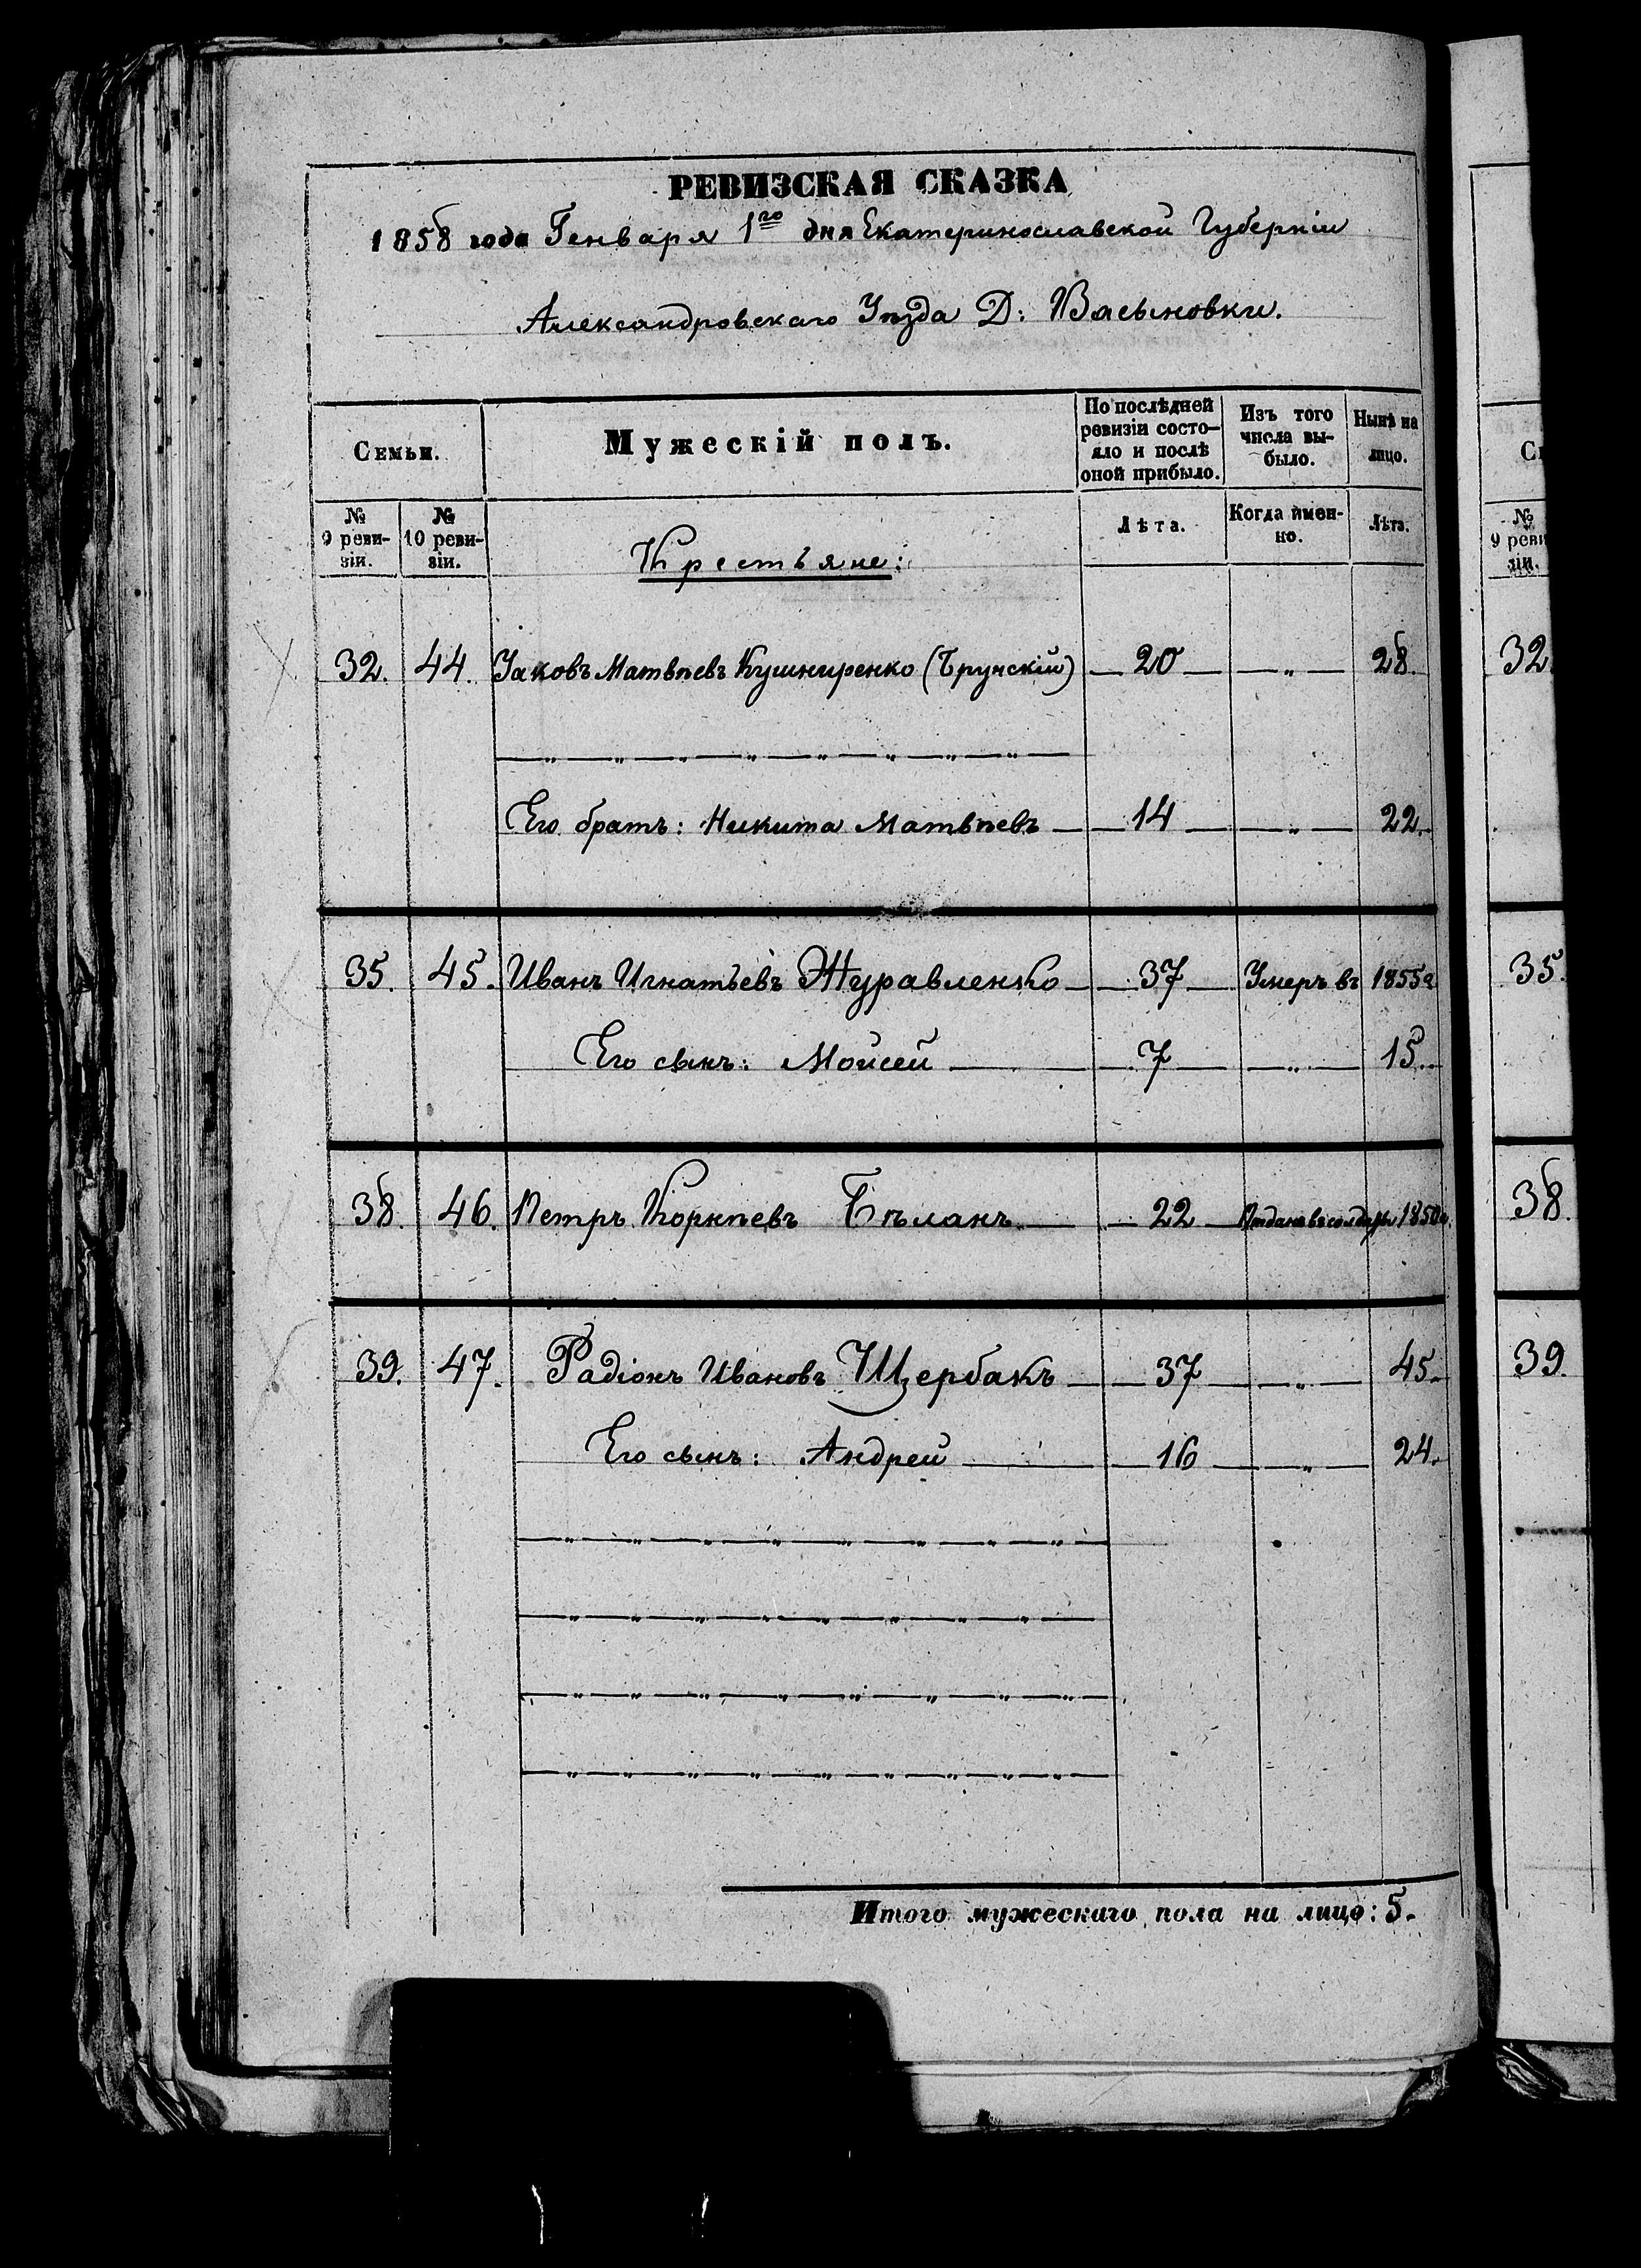 РЕВИЗСКАЯ СКАЗКА
1858 года Генваря 1го дня Екатеринославской Губерніи
Александровскаго Уѣзда Д: Васыновки.
Семьи.
Мужескій полъ.
По послѣдней ревизіи состо-
яло и послѣ
оной прибыло.
Изъ того
числа вы-
было.
Нынѣ на
лицо.
№
9 реви-
зіи.
№
10 реви-
зіи.
Крестьяне:
Лѣта.
Когда имен-
но.
Лѣта.
32. 44. Яковъ Матвѣевъ Кушниренко (Брунскій) 20 „ 28.
Его братъ: Никита Матвѣевъ 14 „ 22.
35. 45. Иванъ Игнатьевъ Журавленко 37 Умеръ въ 1855г
Его сынъ: Мойсей 7 „ 15.
38. 46. Петръ Корнѣевъ Бѣланъ 22 Отданъ въ солдаты 1850г.
39. 47. Радіонъ Ивановъ Щербакъ 37 „ 45.
Его сынъ: Андрей 16 „ 24.
Итого мужескаго пола на лицо: 5.
№
9 реви
зіи.
32
35.
38.
39.